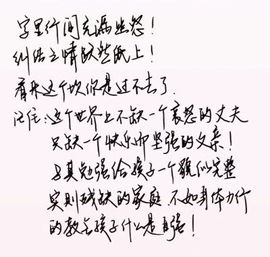 字里行间充满幽怨!
纠结之情跃然纸上!
看来这个坎你是过不去了.
记住:这个世界上不缺一个哀怨的丈夫
只缺一个快乐而坚强的父亲!
与其勉强给孩子一个貌似完整
实则残缺的家庭 不如身体力行
的教会孩子什么是自强!